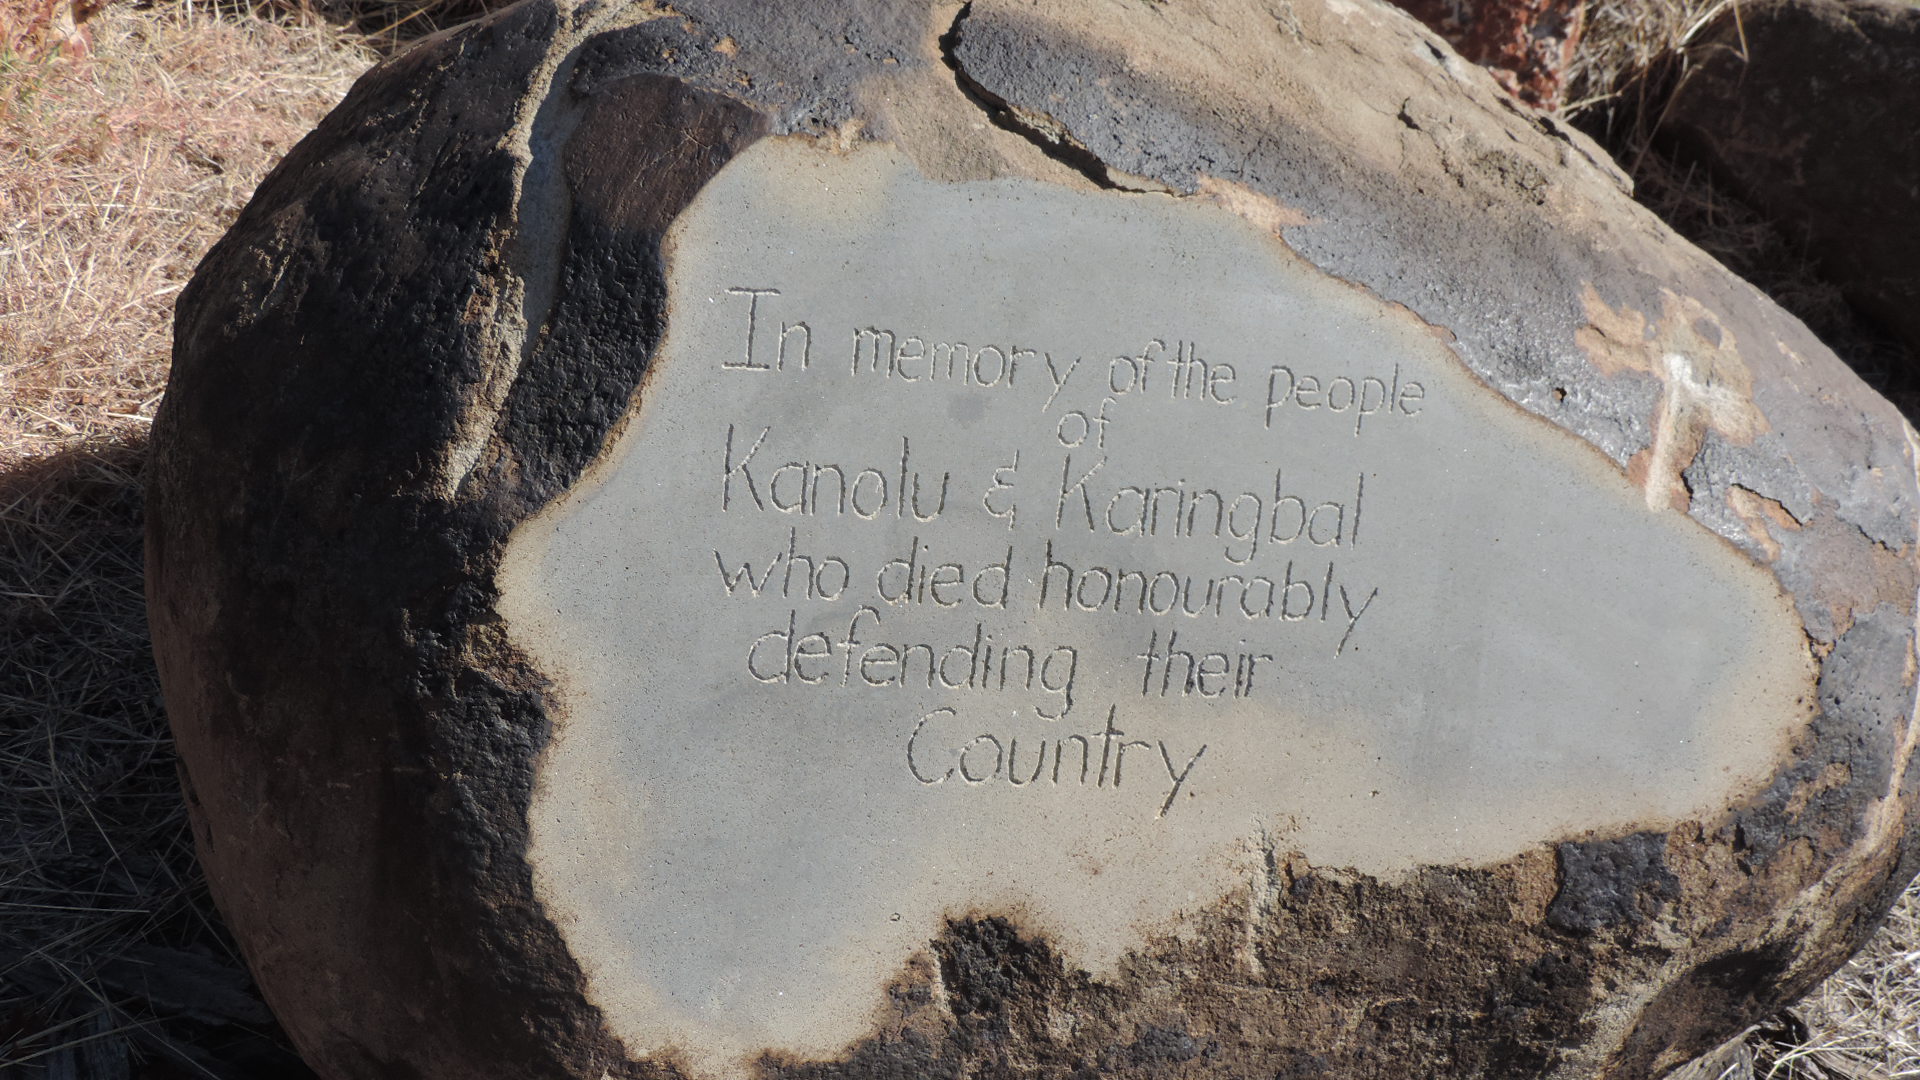 In memory of the people
of
Kanolu & Karingbal
who died honourably
defending their
Country